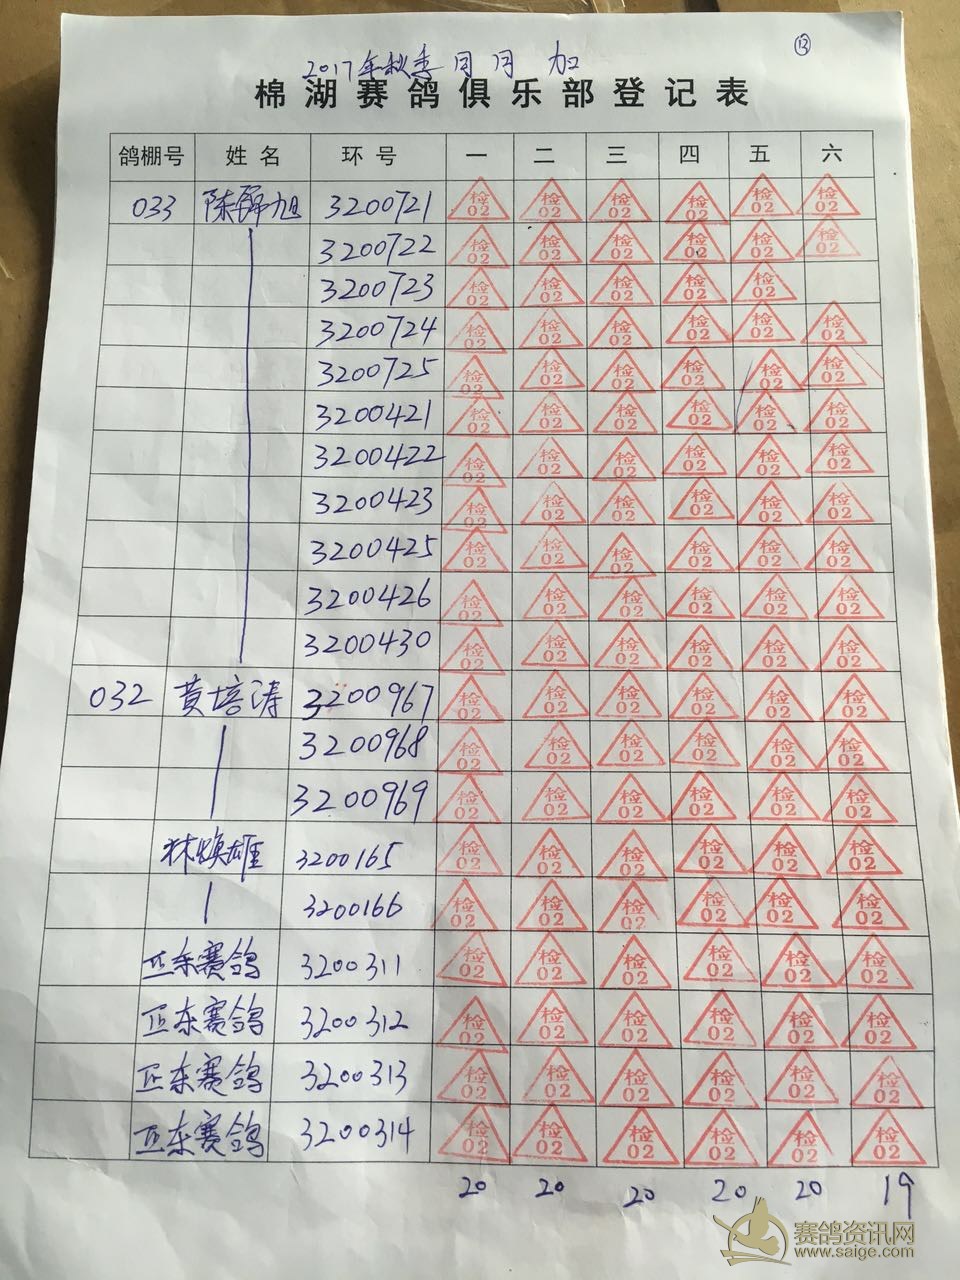 ⑬
2017年秋季月月 加
棉湖赛鸽俱乐部登记表
鸽棚号 姓名 环号 一 二 三 四 五 六
033 陈锦旭 3200721 检02 检02 检02 检02 检02 检02
3200722 检02 检02 检02 检02 检02 检02
3200723 检02 检02 检02 检02 检02
3200724 检02 检02 检02 检02 检02 检02
3200725 检02 检02 检02 检02 检02 检02
3200421 检02 检02 检02 检02 检02 检02
3200422 检02 检02 检02 检02 检02 检02
3200423 检02 检02 检02 检02 检02 检02
3200425 检02 检02 检02 检02 检02 检02
3200426 检02 检02 检02 检02 检02 检02
3200430 检02 检02 检02 检02 检02 检02
032 黄培涛 3200967 检02 检02 检02 检02 检02 检02
3200968 检02 检02 检02 检02 检02 检02
3200969 检02 检02 检02 检02 检02 检02
林焕雄 3200165 检02 检02 检02 检02 检02 检02
3200166 检02 检02 检02 检02 检02 检02
正东赛鸽 3200311 检02 检02 检02 检02 检02 检02
正东赛鸽 3200312 检02 检02 检02 检02 检02 检02
正东赛鸽 3200313 检02 检02 检02 检02 检02 检02
正东赛鸽 3200314 检02 检02 检02 检02 检02 检02
20 20 20 20 20 19
赛鸽资讯网
www.saige.com